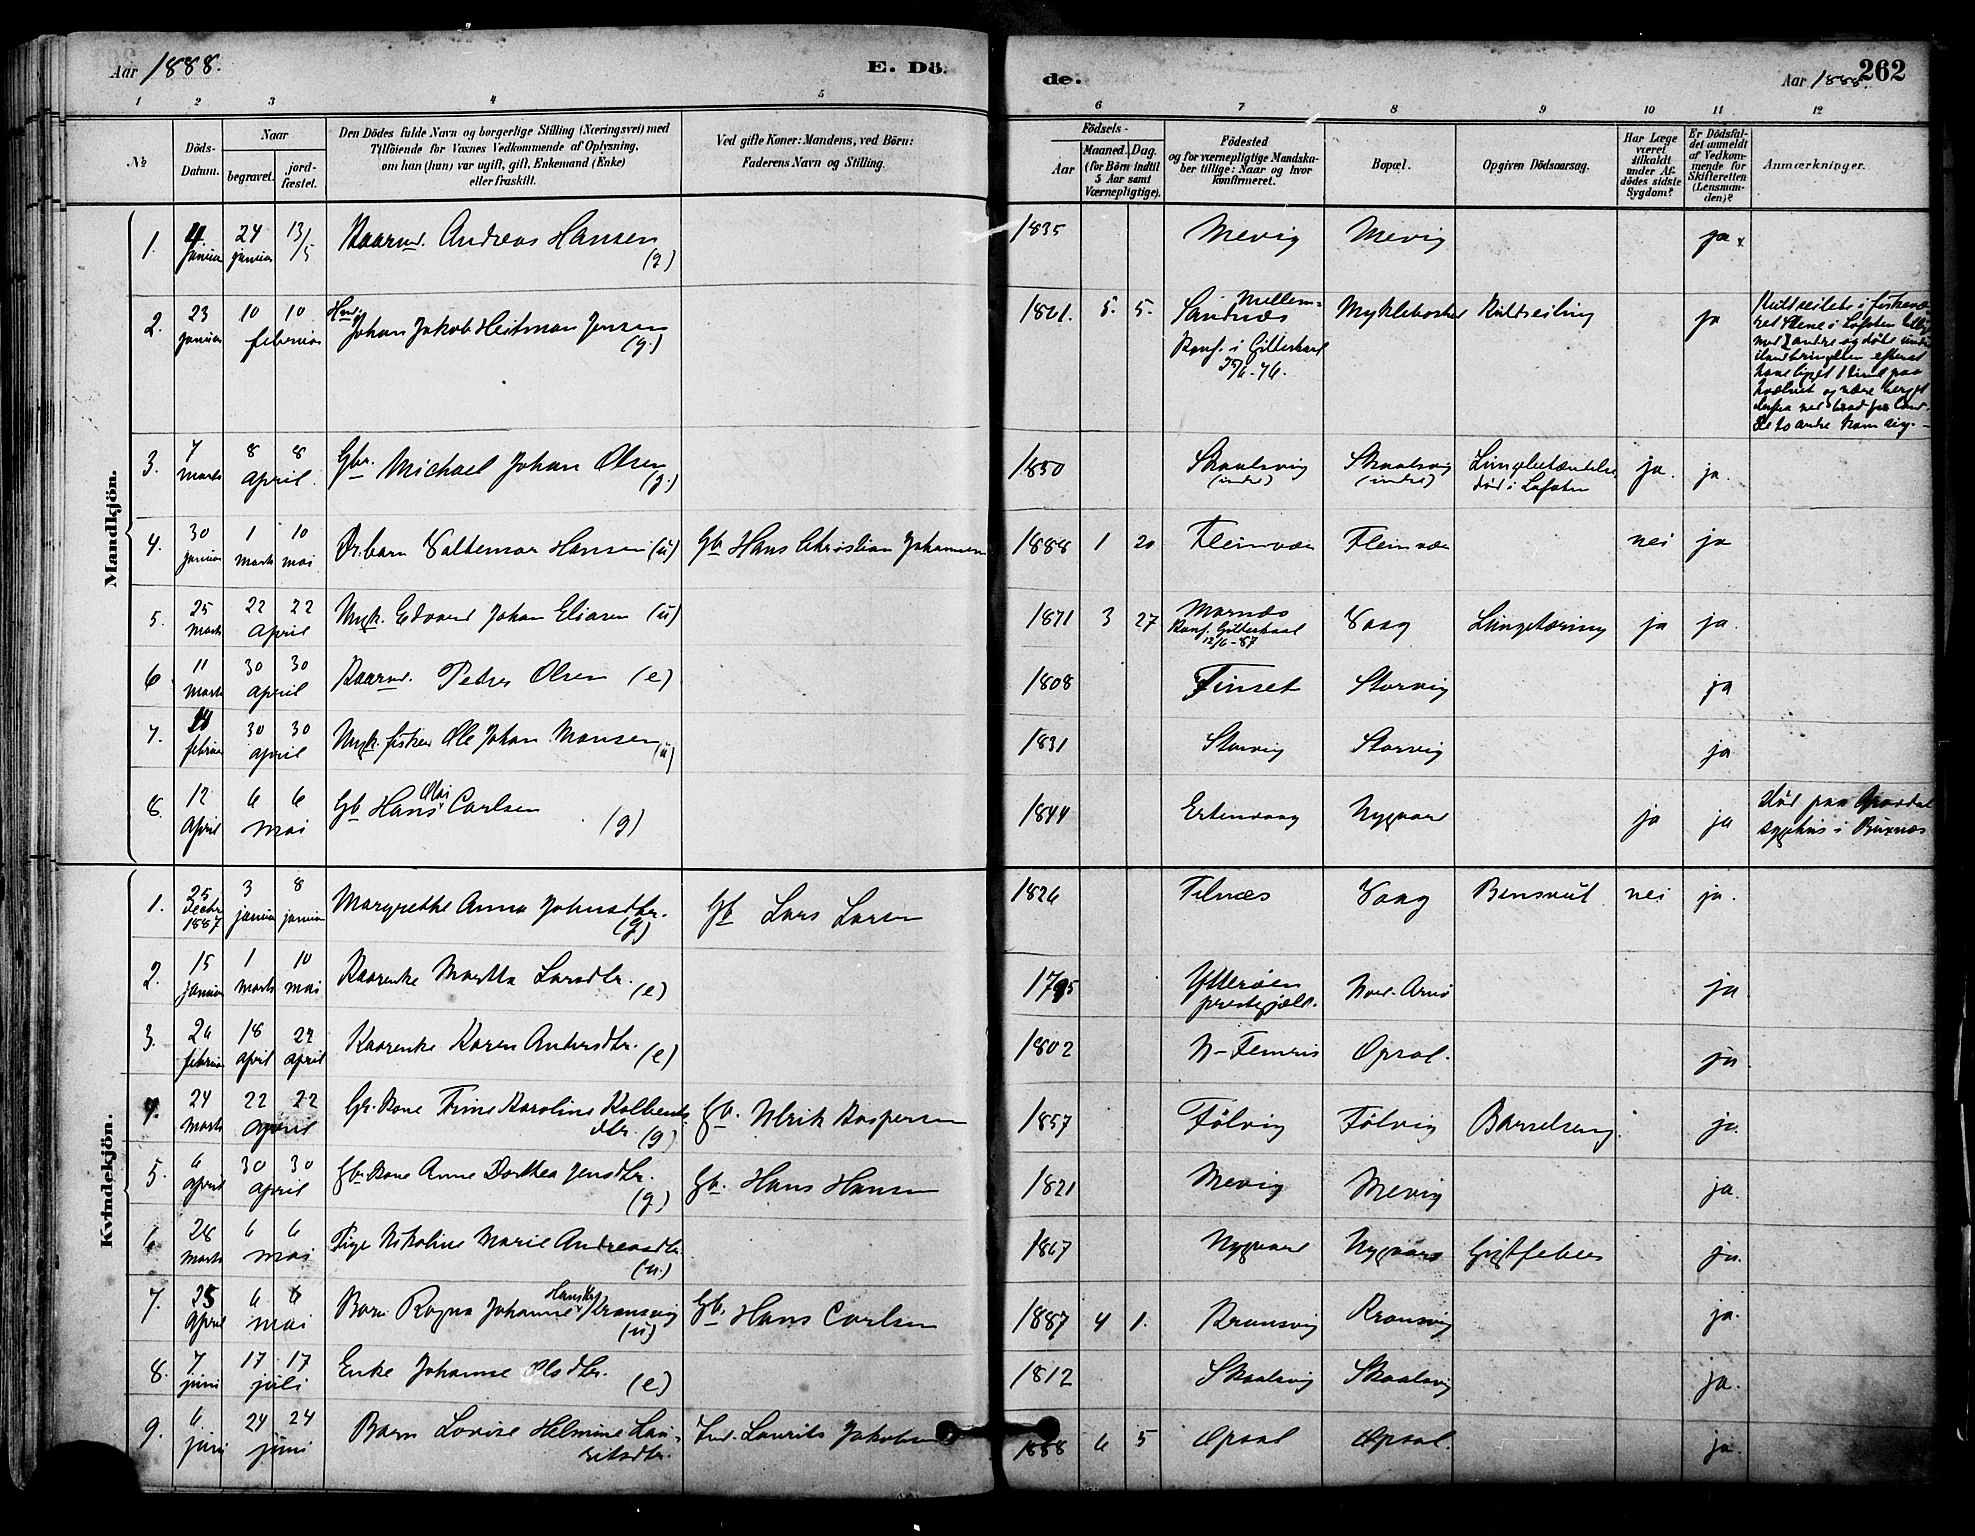 Aar 1888.
E. Dö-
de.
Aar 1888.
262
1 2 3 4 5 6 7 8 9 10 11 12
№
Döds-
Datum.
Naar
begravet.
jord-
fæstet.
Den Dödes fulde Navn og borgerlige Stilling (Næringsvei) med
Tilföiende for Voxnes Vedkommende af Oplysning,
om han (hun) var ugift, gift, Enkemand (Enke)
eller fraskilt.
Ved gifte Koner: Mandens, ved Börn:
Faderens Navn og Stilling.
Födsels-
Aar
Maaned. Dag.
(for Börn indtil
5 Aar samt
Værnepligtige).
Födested
og for værnepligtige Mandska-
ber tillige: Naar og hvor
konfirmeret.
Bopæl.
Opgiven Dödsaarsag.
Har Læge
været
tilkaldt
under Af-
dödes sidste
Sygdom?
Er Dödsfal-
det anmeldt
af Vedkom-
mende for
Skifteretten
(Lensman-
den)?
Anmærkninger.
Mandkjön.
1. 4. januar 24 januar 13/5 Kaarmd. Andreas Hansen (g) 1835 Mevig Mevig ja
2. 23 januar 10 10 februar Johan Jakob Heitman Jensen (g.) 1861. 5. 5. Sandnæs Konf. i Gilleskaal 25/6-76. Myklebostad Kuldseiling ja
3. 7 marts 8 8 april. Gbr. Michael Johan Olsen (g.) 1850 Skaalsvig (indre) Skaalsvig (indre) Lungebetændelse død i Lofoten ja. ja.
4. 30 januar 1 marts 10 mai Dr.barn Valdemar Hansen (u) Gb Hans Christian Johansen 1888 1 20 Fleinvær Fleinvær nei ja
5. 25 marts 22 22 april Ungk. Edvard Johan Eliasen (u) 1871 3 27 Marnæs Konf. Gilleskaal 12/6-87 Vaag Lungetæring ja ja.
6 11 marts 30 30 april Kaarmd. Peder Olsen (e) 1808 Finset Storvig ja
7. februar 30 30 april Ungk. fisker Ole Johan Monsen (u) 1831 Storvig Storvig ja
8. 12 april 6 6 mai Gb Hans Olai Carlsen (g) 1844 Ertenvaag Nygaard ja ja død paa Gravdal sygehus i Buxnæs
Kvindekjön.
1. 25 decbr 1887 3 januar 8 januar Margrethe Anna Johnsdtr. (g) Gb Lars Larsen 1826 Felnæs Vaag Bensaar nei ja.
2. 15 januar 1 marts 10 mai Kaarenke Martha Larsdtr. (e) 1795 Ytterøen prestegjæld. Nord-Arnø ja
3. 26 februar 18 april 22 april Kaarenke Karen Andersdtr. (e) 1802 Opsal. ja
4. 24 marts 22 22 april Gb. Kone Trine Karoline Kolbents dtr. (g) Gb. Ulrik Kaspersen 1857 Følvig Følvig Barselseng. ja.
5. 6 april 30 30 april Gb. Kone Anne Dorthea Jensdtr. (g) Gb. Hans Hansen 1821 Mevig Mevig ja.
6 28 marts 6 6 mai Pige Nikoline Marie Andreasdtr. (u.) 1867 Nygaard Nygaard Gigtfeber ja.
7. 25 april 6 6 mai Barn Ragna Johanne Hansdtr Kransvig (u) Gb. Hans Carlsen 1887 4 1. Kransvig Kransvig ja.
8. 7 juni 17 17 juli Enke Johanne Olsdtr. (e) 1812 Skaalsvig Skaalsvig ja.
9. 6. juni 24 24 juni Barn Lovise Helmine Lau- ritsdtr. Ind. Laurits Jakobsen 1888 6 5 Opsal Opsal. ja.